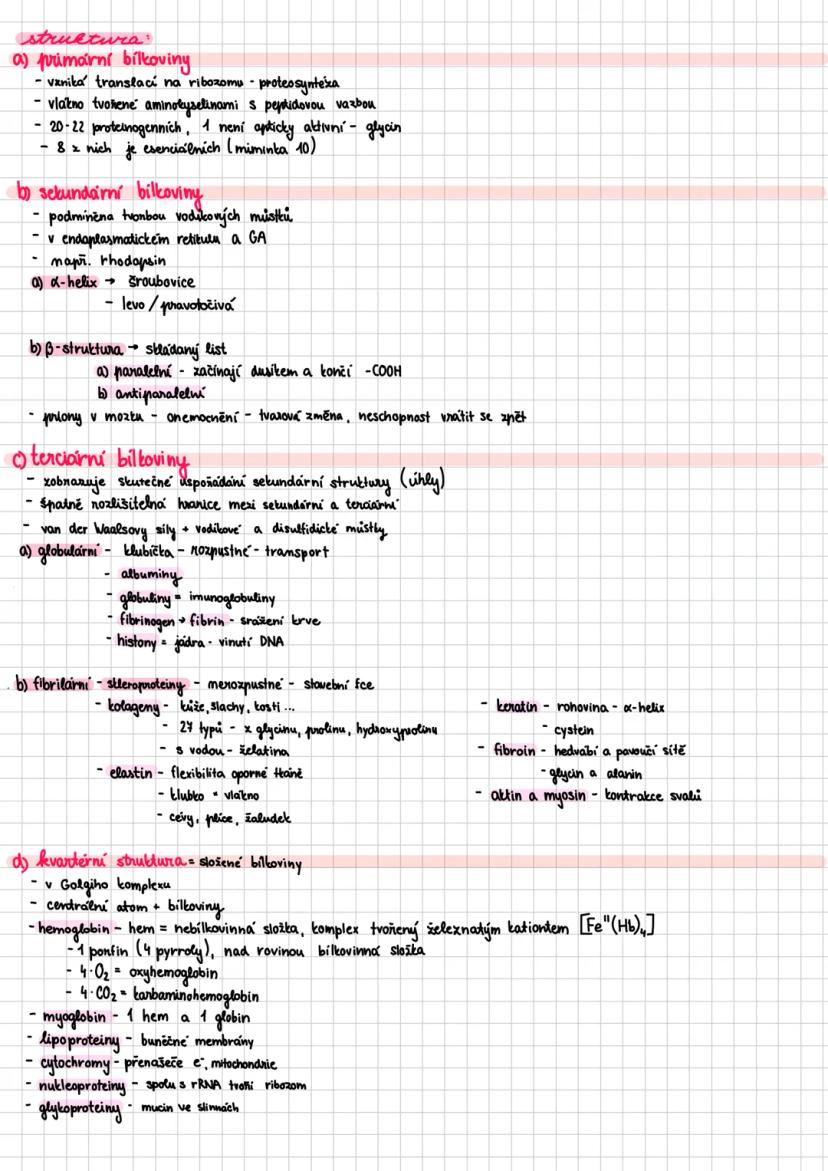 struktura:
a) primární bílkoviny
- vzniká translací na ribozomu - proteosyntéza
- vlákno tvořené aminokyselinami s peptidovou vazbou
- 20-22 proteinogenních, 1 není opticky aktivní - glycin
- 8 z nich je esenciálních (miminka 10)
b) sekundární bílkoviny
- podmíněna tvorbou vodíkových můstků
- v endoplasmatickém retikulu a GA
- např. rhodopsin
a) α-helix → šroubovice
- levo / pravotočivá
b) β-struktura → skládaný list
a) paralelní - začínají dusíkem a končí -COOH
b) antiparalelní
- priony v mozku - onemocnění - tvarová změna, neschopnost vrátit se zpět
c) terciární bílkoviny
- zobrazuje skutečné uspořádání sekundární struktury (úhly)
- špatně rozlišitelná hranice mezi sekundární a terciární
- van der Waalsovy síly + vodíkové a disulfidické můstky
a) globulární - klubíčka - rozpustné - transport
- albuminy
- globuliny = imunoglobuliny
- fibrinogen → fibrin - srážení krve
- histony = jádra - vinutí DNA
b) fibrilární - skleroproteiny - nerozpustné - stavební fce
- kolageny - kůže, šlachy, kosti ...
- 27 typů - x glycinu, prolinu, hydroxyprolinu
- s vodou - želatina
- elastin - flexibilita oporné tkáně
- klubko × vlákno
- cévy, plíce, žaludek
- keratin - rohovina - α-helix
- cystein
- fibroin - hedvábí a pavoučí sítě
- glycin a alanin
- aktin a myosin - kontrakce svalů
d) kvartérní struktura = složené bílkoviny
- v Golgiho komplexu
- centrální atom + bílkoviny
- hemoglobin - hem = nebílkovinná složka, komplex tvořený železnatým kationtem [Fe"(Hb)₄]
- 1 porfin (4 pyrroly), nad rovinou bílkovinná složka
- 4·O₂ = oxyhemoglobin
- 4·CO₂ = karbaminohemoglobin
- myoglobin - 1 hem a 1 globin
- lipoproteiny - buněčné membrány
- cytochromy - přenašeče e⁻, mitochondrie
- nukleoproteiny - spolu s rRNA tvoří ribozom
- glykoproteiny - mucin ve slinách